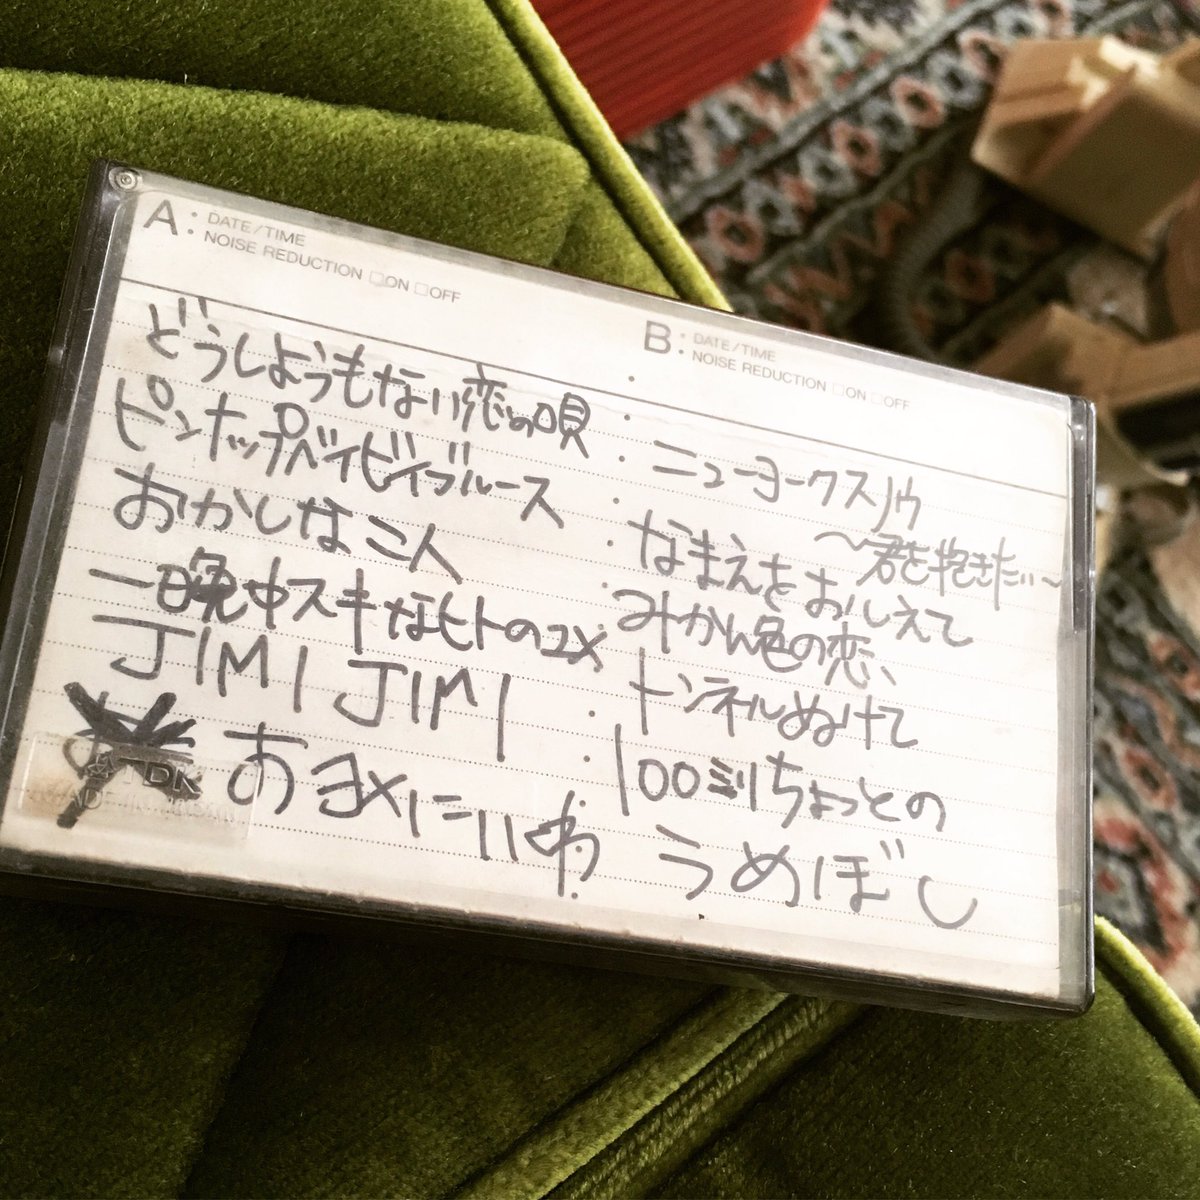 A: DATE/TIME
NOISE REDUCTION □ON □OFF
どうしようもない恋の唄
ピンナップベイビィブルース
おかしな二人
一晩中スキなヒトのユメ
JIMI JIMI
おヨメにいゆ
B: DATE/TIME
NOISE REDUCTION □ON □OFF
ニューヨークスノウ
〜君を抱きたい〜
なまえをおしえて
みかん色の恋
トンネルぬけて
100ミリちょっとの
うめぼし